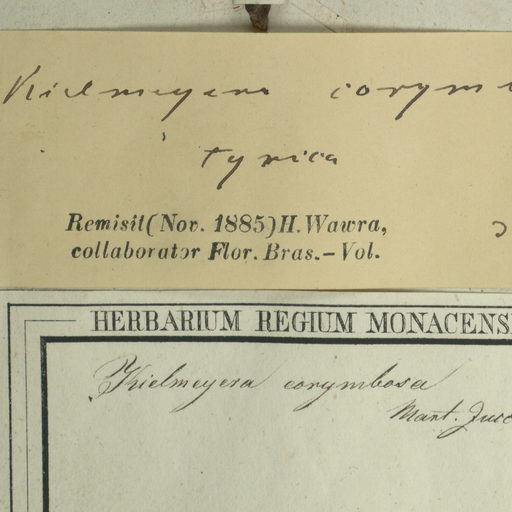 Kielmeyera corym
typica
Remisit (Nov. 1885) H. Wawra,
collaborator Flor. Bras. - Vol.
HERBARIUM REGIUM MONACENS
Kielmeyera corymbosa
Mart. Zucc